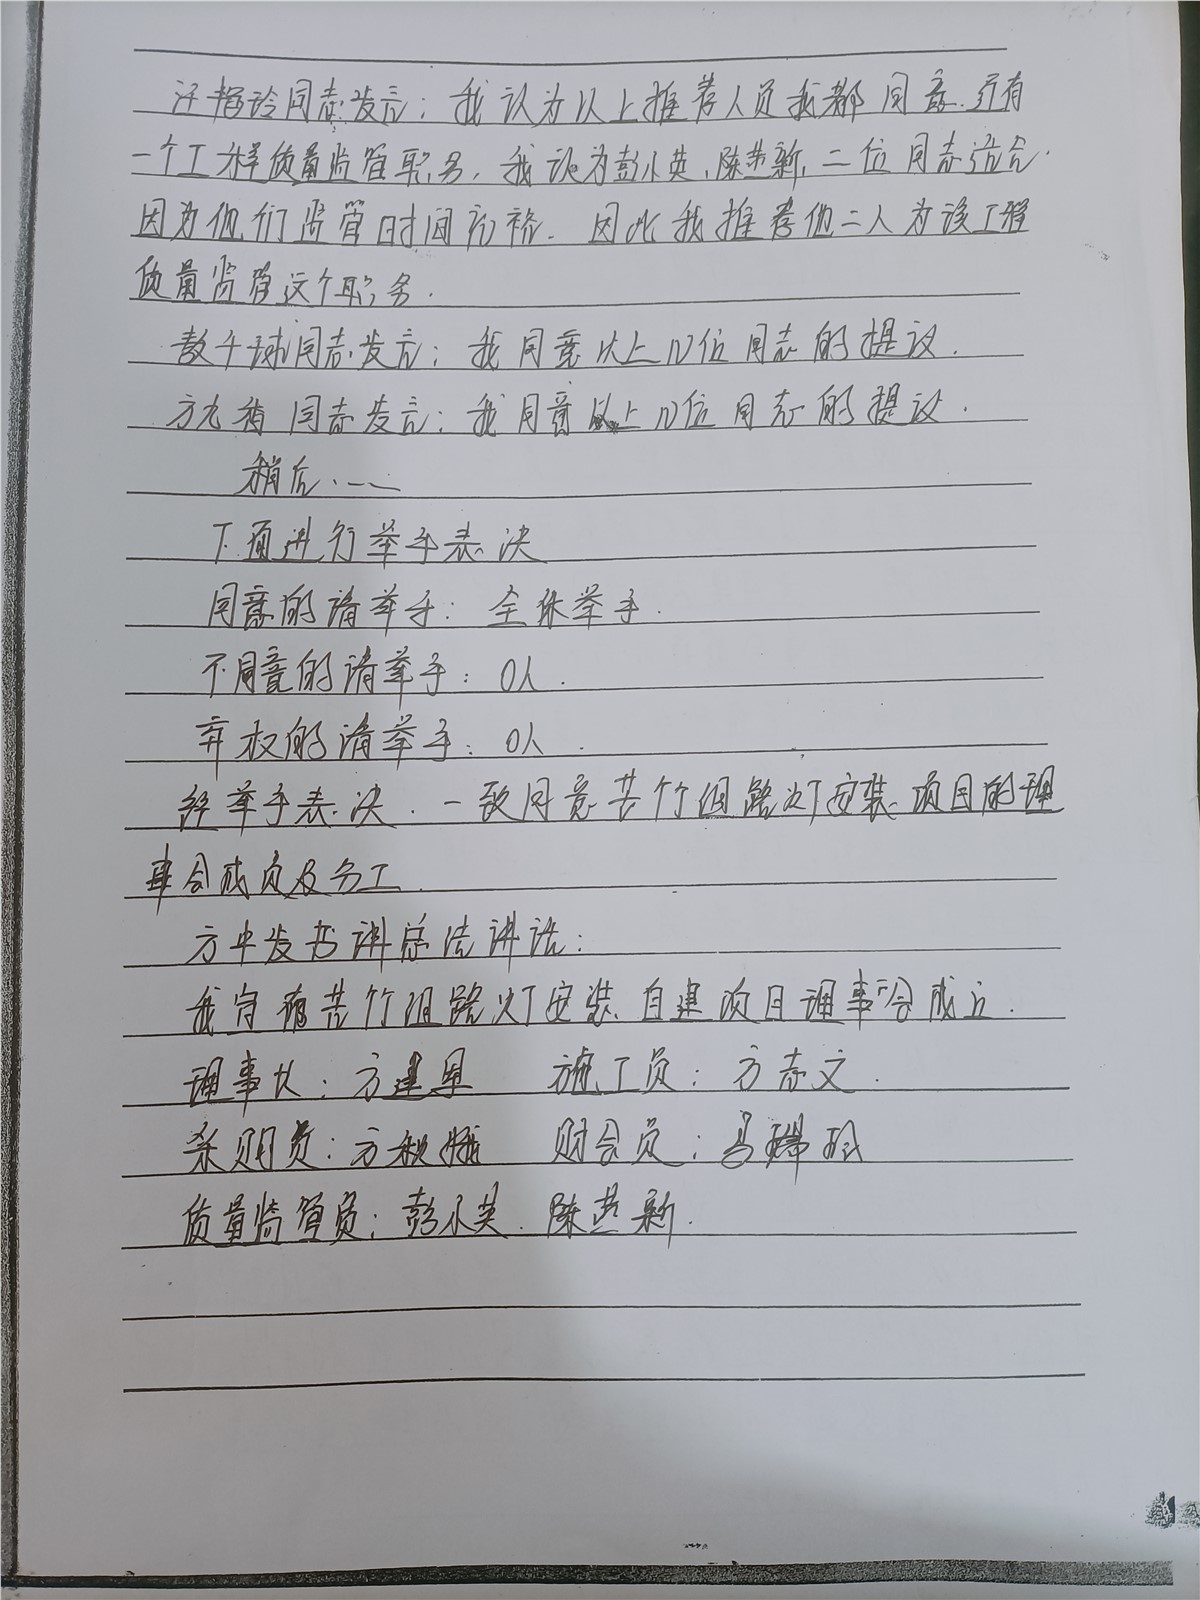 同志发言：我认为以上推荐人员我都同意.另有
一个工程质量监管职务，我认为彭小英、陈燕新，二位同志适合.
因为他们监管时间充裕. 因此我推荐他二人为该工程
质量监管这个职务.
同志发言：我同意以上几位同志的提议.
方九梅同志发言：我同意以上几位同志的提议.
稍后.——
下面进行举手表决
同意的请举手：全体举手.
不同意的请举手：0人.
弃权的请举手：0人.
经举手表决.一致同意苦竹组路灯安装项目的理
事会成员及分工.
方中发书记总结讲话：
我宣布苦竹组路灯安装自建项目理事会成立.
理事长：方建恩 施工员：方志文.
采购员：方秋娥 财会员：
质量监管员：彭小英.陈燕新.